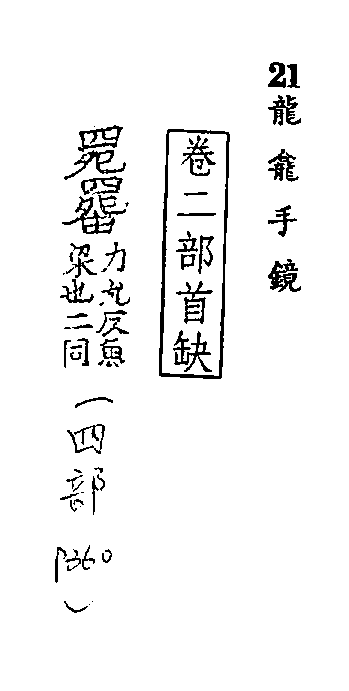 21
龍龕手鏡
卷二部首缺
罶
力九反魚
梁也二同
(四部
P360
)